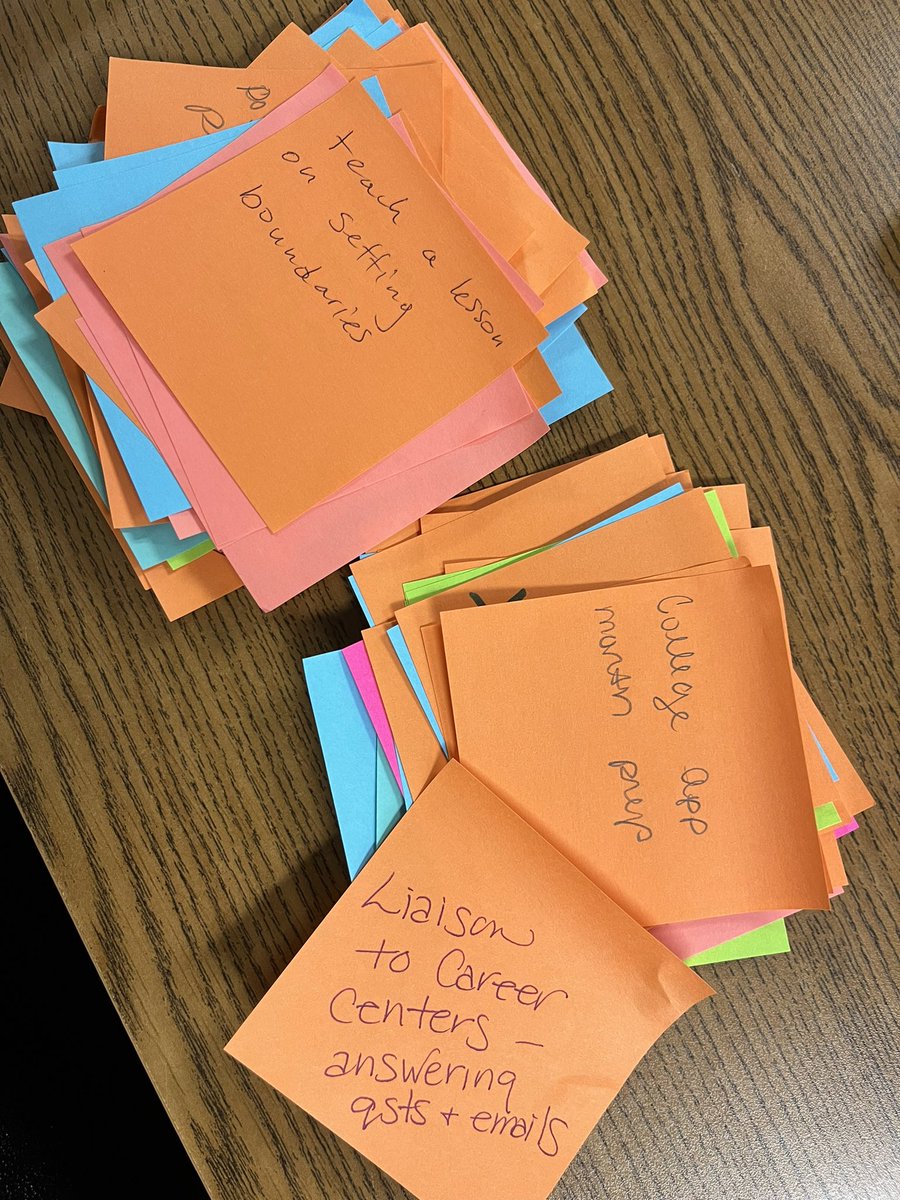 teach a lesson
on setting
boundaries
College app
month prep
Liaison
to Career
Centers –
answering
qsts + emails